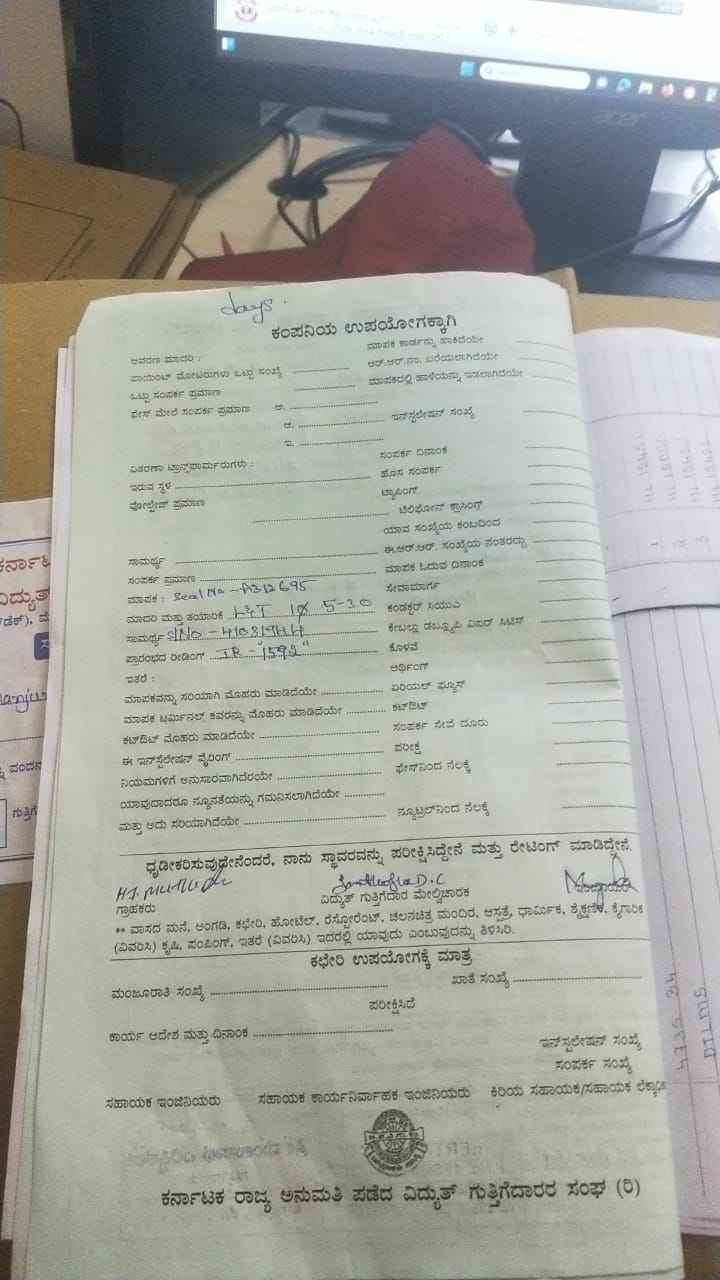 Search
acer
days.
ಕಂಪನಿಯ ಉಪಯೋಗಕ್ಕಾಗಿ
ಆವರಣ ಮಾದರಿ : ಮಾಪಕ ಕಾರ್ಡನ್ನು ಹಾಕಿದೆಯೇ
ಪಾಯಿಂಟ್ ಮೋಟರುಗಳು ಒಟ್ಟು ಸಂಖ್ಯೆ ಆರ್.ಆರ್.ನಂ. ಬರೆಯಲಾಗಿದೆಯೇ
ಒಟ್ಟು ಸಂಪರ್ಕ ಪ್ರಮಾಣ ಮಾಪಕದಲ್ಲಿ ಹಾಳೆಯನ್ನು ಇಡಲಾಗಿದೆಯೇ
ಫೇಸ್ ಮೇಲೆ ಸಂಪರ್ಕ ಪ್ರಮಾಣ ಅ.
ಆ. ಇನ್‌ಸ್ಟಲೇಷನ್ ಸಂಖ್ಯೆ
ಇ.
ವಿತರಣಾ ಟ್ರಾನ್ಸ್‌ಫಾರ್ಮರುಗಳು : ಸಂಪರ್ಕ ದಿನಾಂಕ
ಇರುವ ಸ್ಥಳ ಹೊಸ ಸಂಪರ್ಕ
ವೋಲ್ಟೇಜ್ ಪ್ರಮಾಣ ಟ್ಯಾಪಿಂಗ್
ಟೆಲಿಫೋನ್ ಕ್ರಾಸಿಂಗ್
ಯಾವ ಸಂಖ್ಯೆಯ ಕಂಬದಿಂದ
ಸಾಮರ್ಥ್ಯ ಈ.ಆರ್.ಆರ್. ಸಂಖ್ಯೆಯ ನಂತರದ್ದು
ಸಂಪರ್ಕ ಪ್ರಮಾಣ ಮಾಪಕ ಓದುವ ದಿನಾಂಕ
ಮಾಪಕ : Seal No - A313695 ಸೇವಾಮಾರ್ಗ
ಮಾದರಿ ಮತ್ತು ತಯಾರಿಕೆ L&T 1Ø 5-30 ಕಂಡಕ್ಟರ್ ಸಿಯುಎ
ಸಾಮರ್ಥ್ಯ S/NO - 41081944 ಕೇಬಲ್ಲು ಡಬ್ಲ್ಯೂಪಿ ವಿಐರ್ ಸಿಟಿಸ್
ಪ್ರಾರಂಭದ ರೀಡಿಂಗ್ IR - "1592" ಕೊಳವೆ
ಇತರೆ : ಆರ್ಥಿಂಗ್
ಮಾಪಕವನ್ನು ಸರಿಯಾಗಿ ಮೊಹರು ಮಾಡಿದೆಯೇ ಏರಿಯಲ್ ಫ್ಯೂಸ್
ಮಾಪಕ ಟರ್ಮಿನಲ್ ಕವರನ್ನು ಮೊಹರು ಮಾಡಿದೆಯೇ ಕಟ್‌ಔಟ್
ಕಟ್‌ಔಟ್ ಮೊಹರು ಮಾಡಿದೆಯೇ ಸಂಪರ್ಕ ಸೇವೆ ದೂರು
ಈ ಇನ್‌ಸ್ಟಲೇಷನ್ ವೈರಿಂಗ್ ಪರೀಕ್ಷೆ
ನಿಯಮಗಳಿಗೆ ಅನುಸಾರವಾಗಿದೆಯೇ ಫೇಸ್‌ನಿಂದ ನೆಲಕ್ಕೆ
ಯಾವುದಾದರೂ ನ್ಯೂನತೆಯನ್ನು ಗಮನಿಸಲಾಗಿದೆಯೇ
ಮತ್ತು ಅದು ಸರಿಯಾಗಿದೆಯೇ ನ್ಯೂಟ್ರಲ್‌ನಿಂದ ನೆಲಕ್ಕೆ
ಧೃಡೀಕರಿಸುವುದೇನೆಂದರೆ, ನಾನು ಸ್ಥಾವರವನ್ನು ಪರೀಕ್ಷಿಸಿದ್ದೇನೆ ಮತ್ತು ರೇಟಿಂಗ್ ಮಾಡಿದ್ದೇನೆ.
ಗ್ರಾಹಕರು ವಿದ್ಯುತ್ ಗುತ್ತಿಗೆದಾರ ಮೇಲ್ವಿಚಾರಕ
** ವಾಸದ ಮನೆ, ಅಂಗಡಿ, ಕಛೇರಿ, ಹೋಟೆಲ್, ರೆಸ್ಟೋರೆಂಟ್, ಚಲನಚಿತ್ರ ಮಂದಿರ, ಆಸ್ಪತ್ರೆ, ಧಾರ್ಮಿಕ, ಶೈಕ್ಷಣಿಕ, ಕೈಗಾರಿಕ
(ವಿವರಿಸಿ) ಕೃಷಿ, ಪಂಪಿಂಗ್, ಇತರೆ (ವಿವರಿಸಿ) ಇದರಲ್ಲಿ ಯಾವುದು ಎಂಬುವುದನ್ನು ತಿಳಿಸಿರಿ.
ಕಛೇರಿ ಉಪಯೋಗಕ್ಕೆ ಮಾತ್ರ
ಮಂಜೂರಾತಿ ಸಂಖ್ಯೆ ಖಾತೆ ಸಂಖ್ಯೆ
ಪರೀಕ್ಷಿಸಿದೆ
ಕಾರ್ಯ ಆದೇಶ ಮತ್ತು ದಿನಾಂಕ
ಇನ್‌ಸ್ಟಲೇಷನ್ ಸಂಖ್ಯೆ
ಸಂಪರ್ಕ ಸಂಖ್ಯೆ
ಸಹಾಯಕ ಇಂಜಿನಿಯರು ಸಹಾಯಕ ಕಾರ್ಯನಿರ್ವಾಹಕ ಇಂಜಿನಿಯರು ಕಿರಿಯ ಸಹಾಯಕ/ಸಹಾಯಕ ಲೆಕ್ಕಾಧಿ
ಕರ್ನಾಟಕ ರಾಜ್ಯ ಅನುಮತಿ ಪಡೆದ ವಿದ್ಯುತ್ ಗುತ್ತಿಗೆದಾರರ ಸಂಘ (ರಿ)